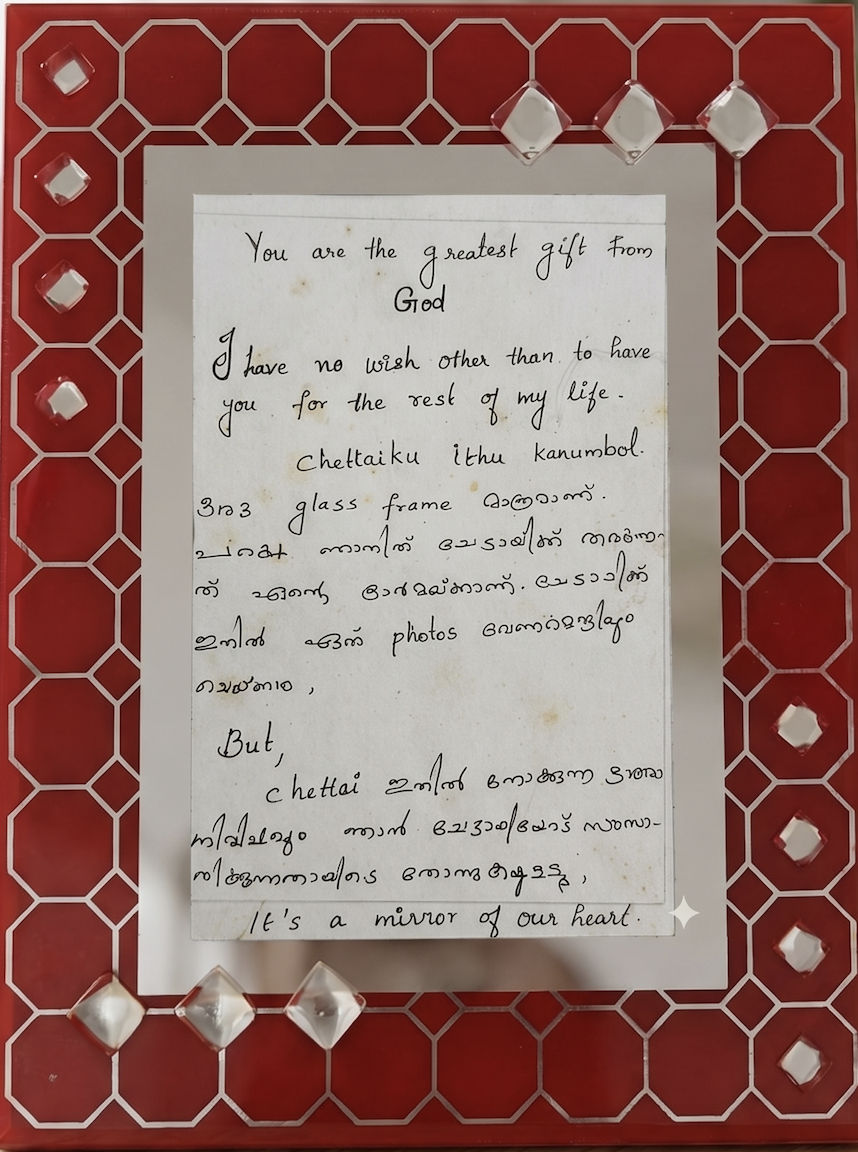 You are the greatest gift from
God
I have no wish other than to have
you for the rest of my life.
Chettaiku ithu kanumbol.
ഒരു glass frame മാത്രമാണ്.
പക്ഷെ ഞാനിത് ചേട്ടായിക്ക്
ത് എന്റെ ഓർമയ്ക്കാണ്. ചേട്ടായിക്ക്
ഇതിൽ ഏത് photos
But,
chettai ഇതിൽ നോക്കുന്ന ഓരോ
ഞാൻ ചേട്ടായിയോട് സംസാ-
രിക്കുന്നതായിട്ടെ
It's a mirror of our heart.